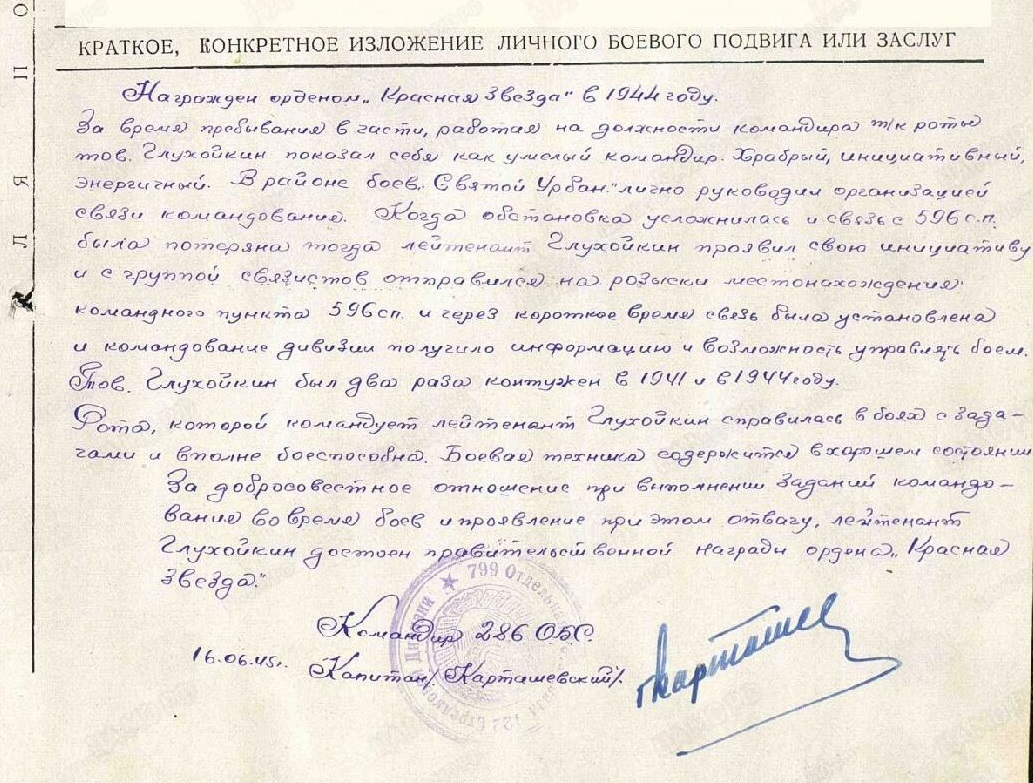 КРАТКОЕ, КОНКРЕТНОЕ ИЗЛОЖЕНИЕ ЛИЧНОГО БОЕВОГО ПОДВИГА ИЛИ ЗАСЛУГ
Награжден орденом „Красная Звезда" в 1944 году.
За время пребывания в части, работая на должности командира т/к роты
тов. Глухойкин показал себя как умелый командир. Храбрый, инициативный,
энергичный. В районе боев „Святой Урбан" лично руководил организацией
связи командование. Когда обстановка усложнилась и связь с 596 с.п.
была потеряна тогда лейтенант Глухойкин проявил свою инициативу
и с группой связистов отправился на розыски местонахождения
командного пункта 596 сп. и через короткое время связь была установлена
и командование дивизии получило информацию и возможность управлять боем.
Тов. Глухойкин был два раза контужен в 1941 и в 1944 году.
Рота, которой командует лейтенант Глухойкин справилась в боях с зада-
чами и вполне боеспособна. Боевая техника содержится в харошем состоянии
За добросовестное отношение при выполнении заданий командо-
вание во время боев и проявление при этом отвагу, лейтенант
Глухойкин достоен правительственной награди ордена „Красная
Звезда."
799 Отдельная
122 Стрелковой Дивизии
Командир 286 ОБС.
16.06.45г. Капитан /Карташевский/.
Карташев
О
П
Я
Л